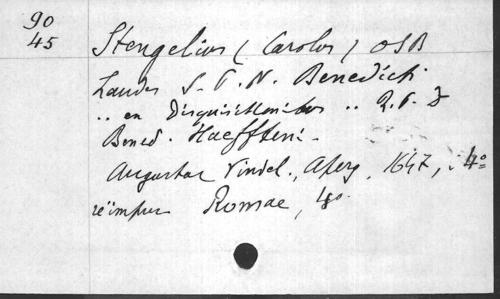 90
45
Stengelius (Carolus) OSB
Laudes S. P. N. Benedicti
.. en Disquisitionibus .. R. P. D
Bened. Haefteni.
Augustae Vindel., Aperg, 1647, 4°
réimpr Romae, 4°